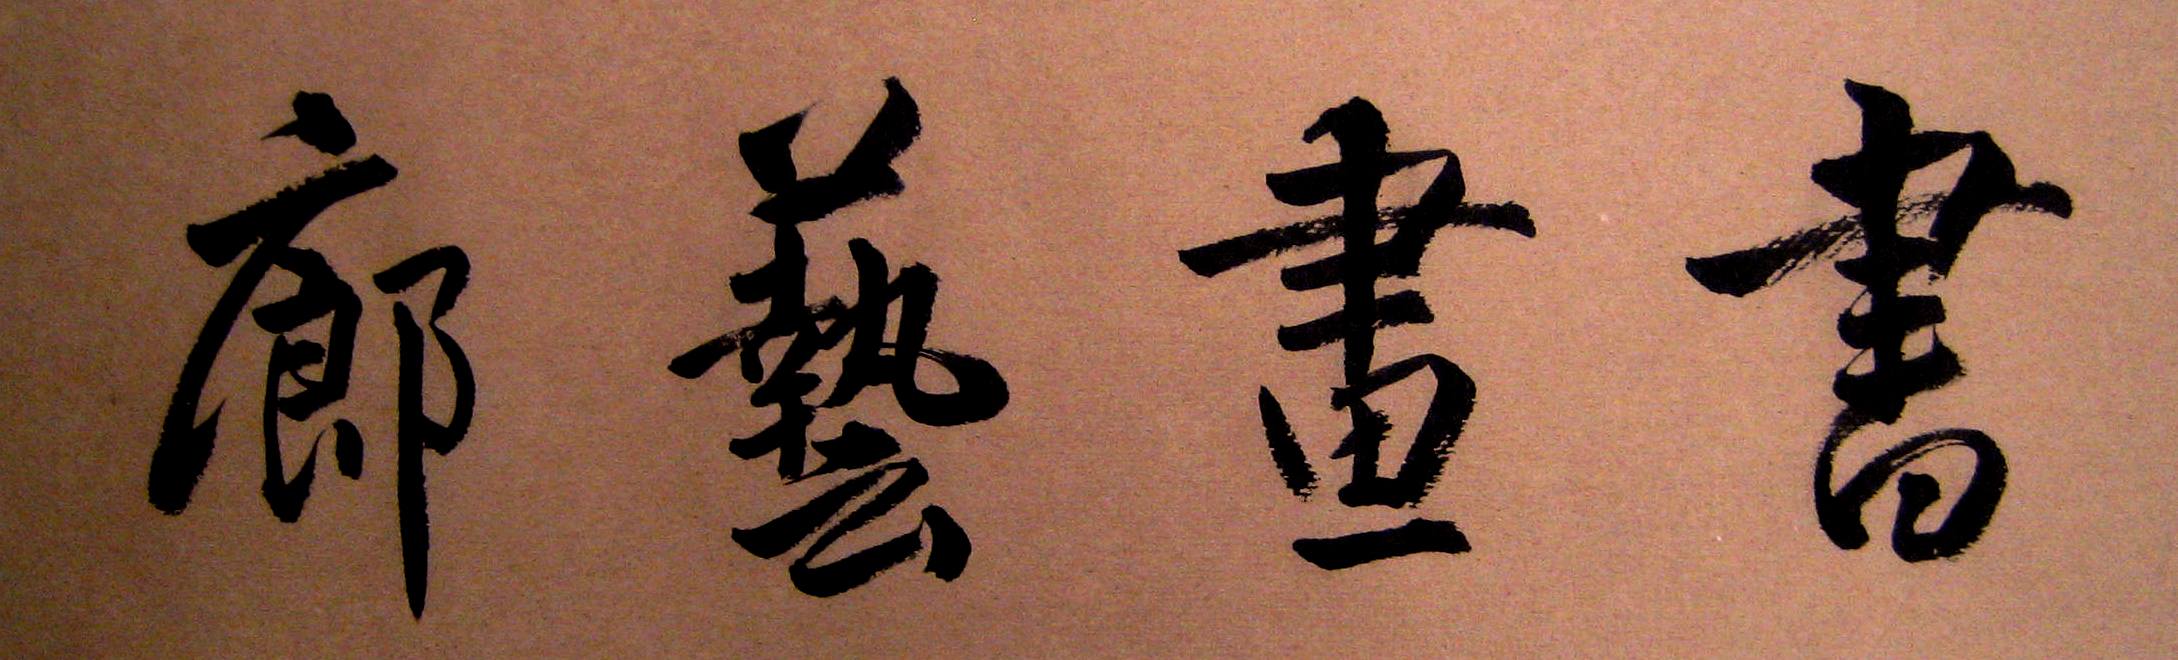 書畫藝廊